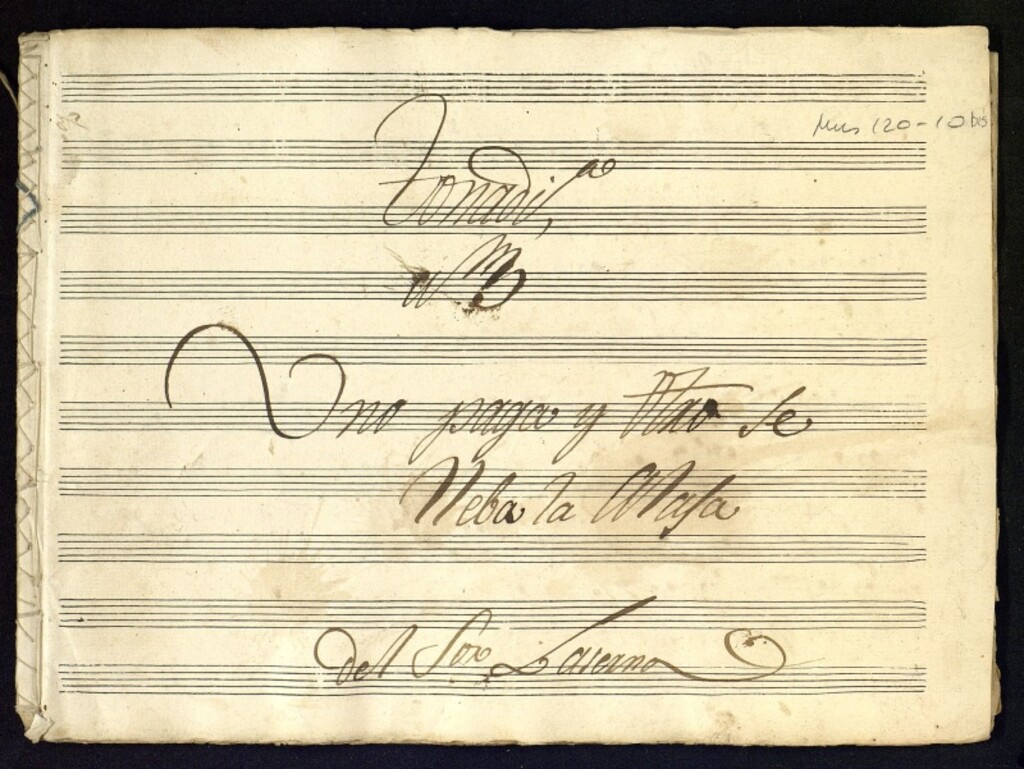 Mus 120-10 bis
Tonadill.ª
a 3
Uno paga y Otro se
lleba la Maja
del Sor Laserna